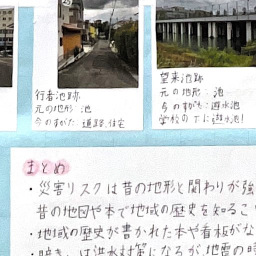 行者池跡
元の地形：池
今のすがた：道路、住宅
望来池跡
元の地形：池
今のすがた：遊水池
学校の下に遊水池！
まとめ
・災害リスクは昔の地形と関わりが強
昔の地図や本で地域の歴史を知るこ
・地域の歴史が書かれた本や看板がな
は洪水対策になるが、地震の時